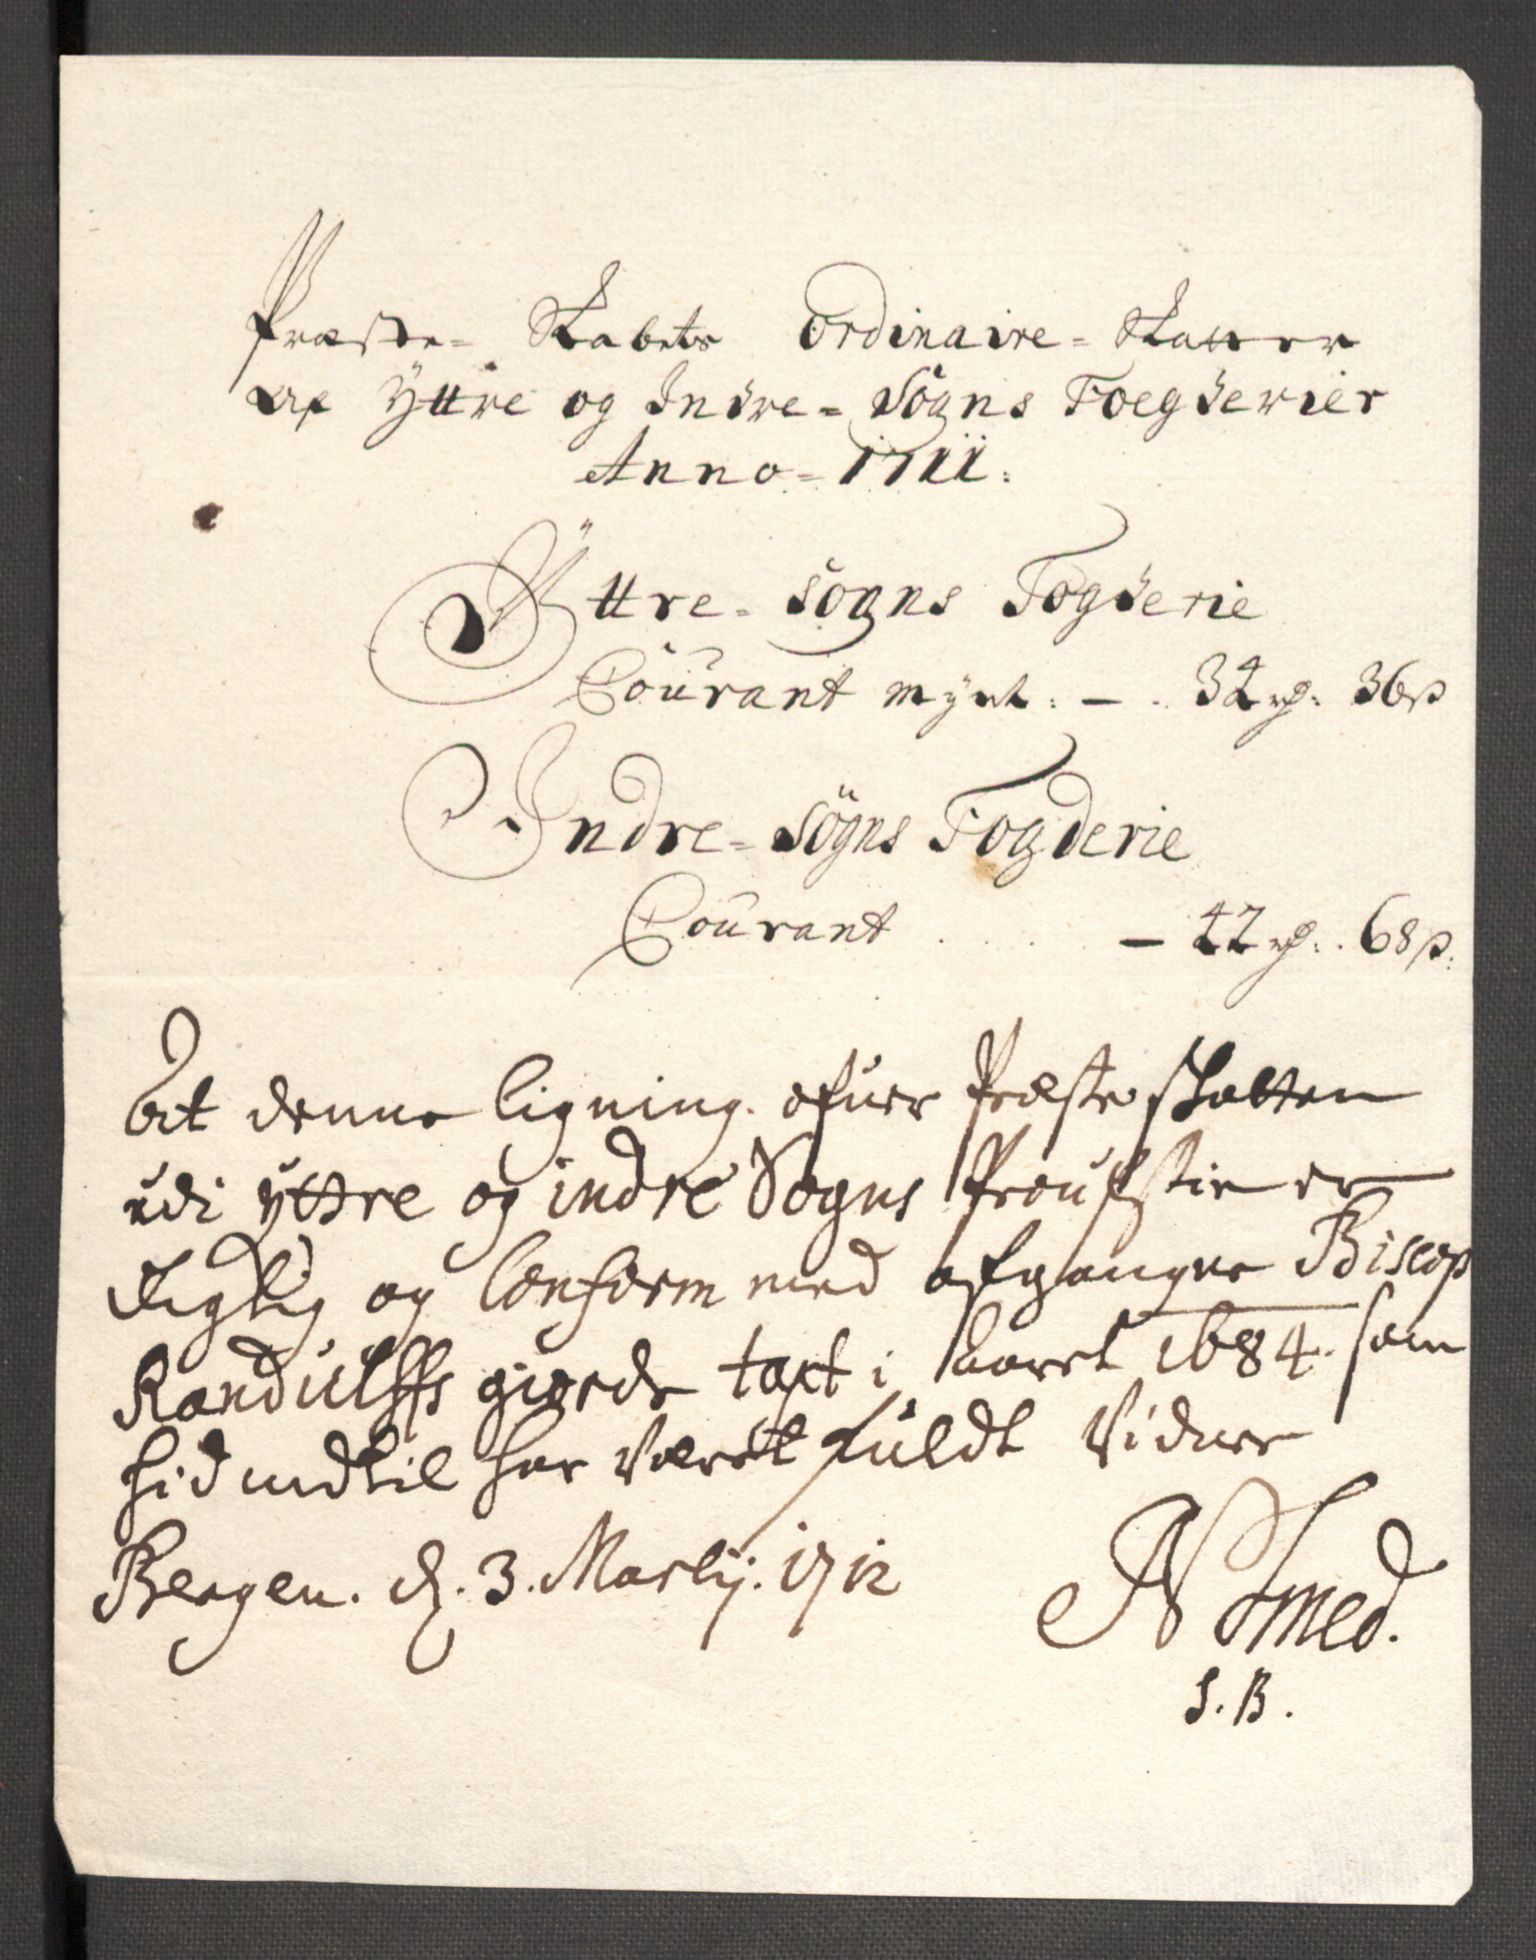 Præste- Skabets Ordinaire- Skatter
Af Ÿttre og Indre- Sogns Foegderier
Anno- 1711.
Ÿttre- Sogns Fogderie
Courant mÿnt: - . 34 rd: 36 ß
Indre- Sogns Fogderie
Courant . . . . - 42 rd: . 68 ß:
At denne ligning ofuer Præste skatten
udi yttre og indre Sogns Proufstier er
rigtig og Conform med afgangne Biscop
Randulffs giorde taxt i aaret 1684. som
hid indtil har været fuldt Vidner
Bergen. d. 3. Martij. 1712
N Smed.
S. B.